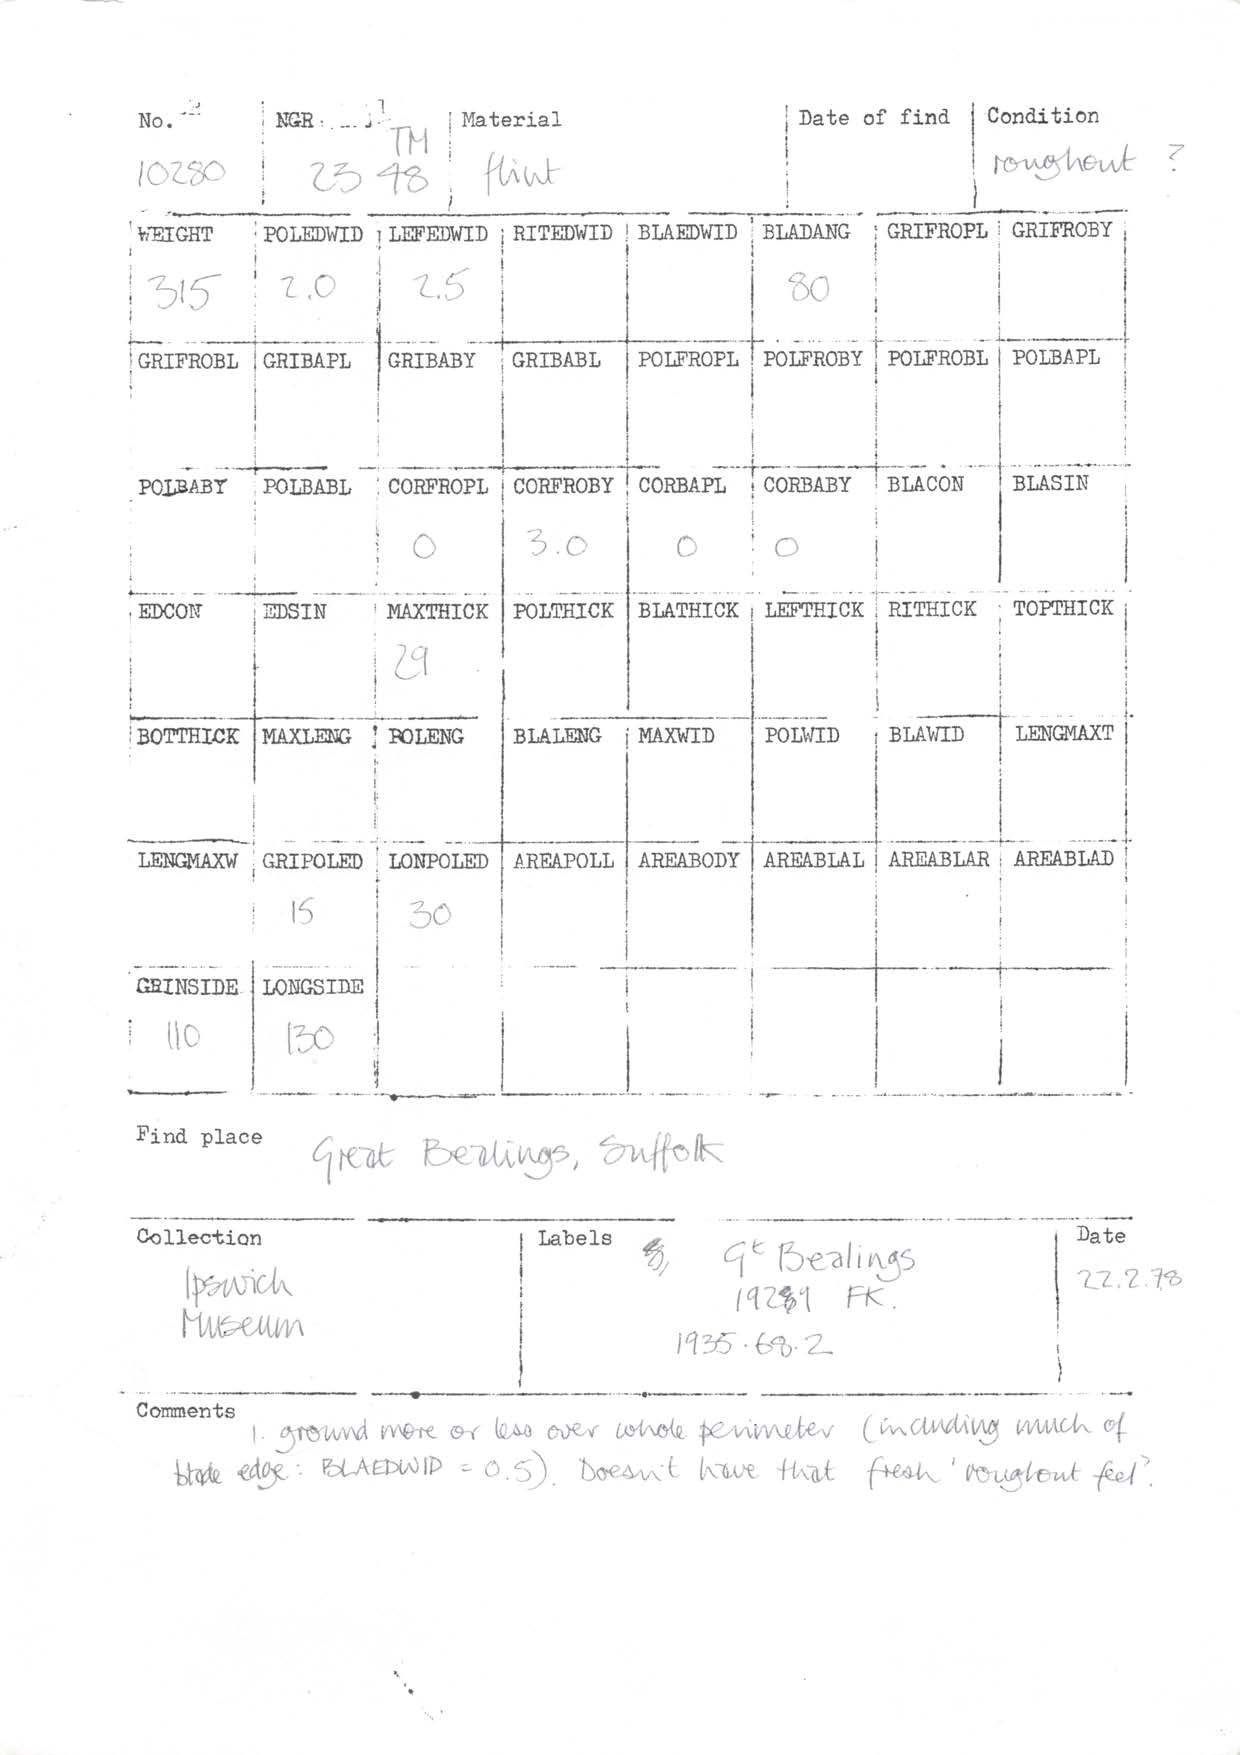 No. NGR Material Date of find Condition
10280 TM 23 48 flint roughout ?
WEIGHT POLEDWID LEFEDWID RITEDWID BLAEDWID BLADANG GRIFROPL GRIFROBY
315 2.0 2.5 80
GRIFROBL GRIBAPL GRIBABY GRIBABL POLFROPL POLFROBY POLFROBL POLBAPL
POLBABY POLBABL CORFROPL CORFROBY CORBAPL CORBABY BLACON BLASIN
0 3.0 0 0
EDCON EDSIN MAXTHICK POLTHICK BLATHICK LEFTHICK RITHICK TOPTHICK
29
BOTTHICK MAXLENG POLENG BLALENG MAXWID POLWID BLAWID LENGMAXT
LENGMAXW GRIPOLED LONPOLED AREAPOLL AREABODY AREABLAL AREABLAR AREABLAD
15 30
GRINSIDE LONGSIDE
110 130
Find place Great Bealings, Suffolk
Collection Labels Date
Gt Bealings
Ipswich 22.2.78
FK.
Museum
1935.68.2
Comments
1. ground more or less over whole perimeter (including much of
blade edge: BLAEDWID = 0.5). Doesn't have that fresh 'roughout feel'.